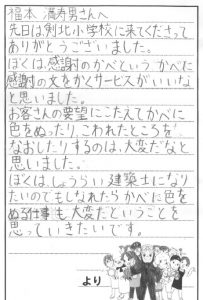 福本 満寿男さんへ
先日は剣北小学校に来てくださって
ありがとうございました。
ぼくは、感謝のかべという かべに
感謝の文をかくサービスがいいな
と思いました。
お客さんの要望にこたえてかべに
色をぬったり、こわれたところを
なおしたりするのは、大変だなと
思いました。
ぼくは、しょうらい 建築士になり
たいのでもしなれたら かべに色を
ぬる仕事も 大変だということを
思っていきたいです。
より